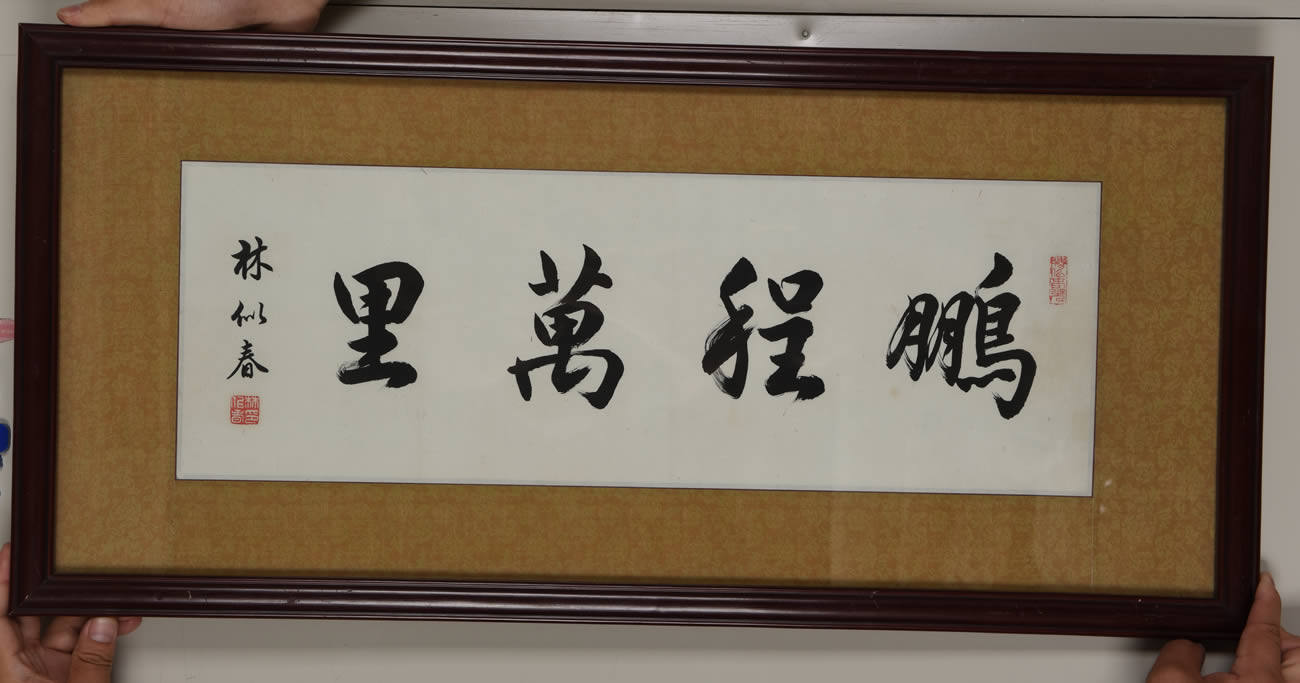 鵬程萬里
林似春